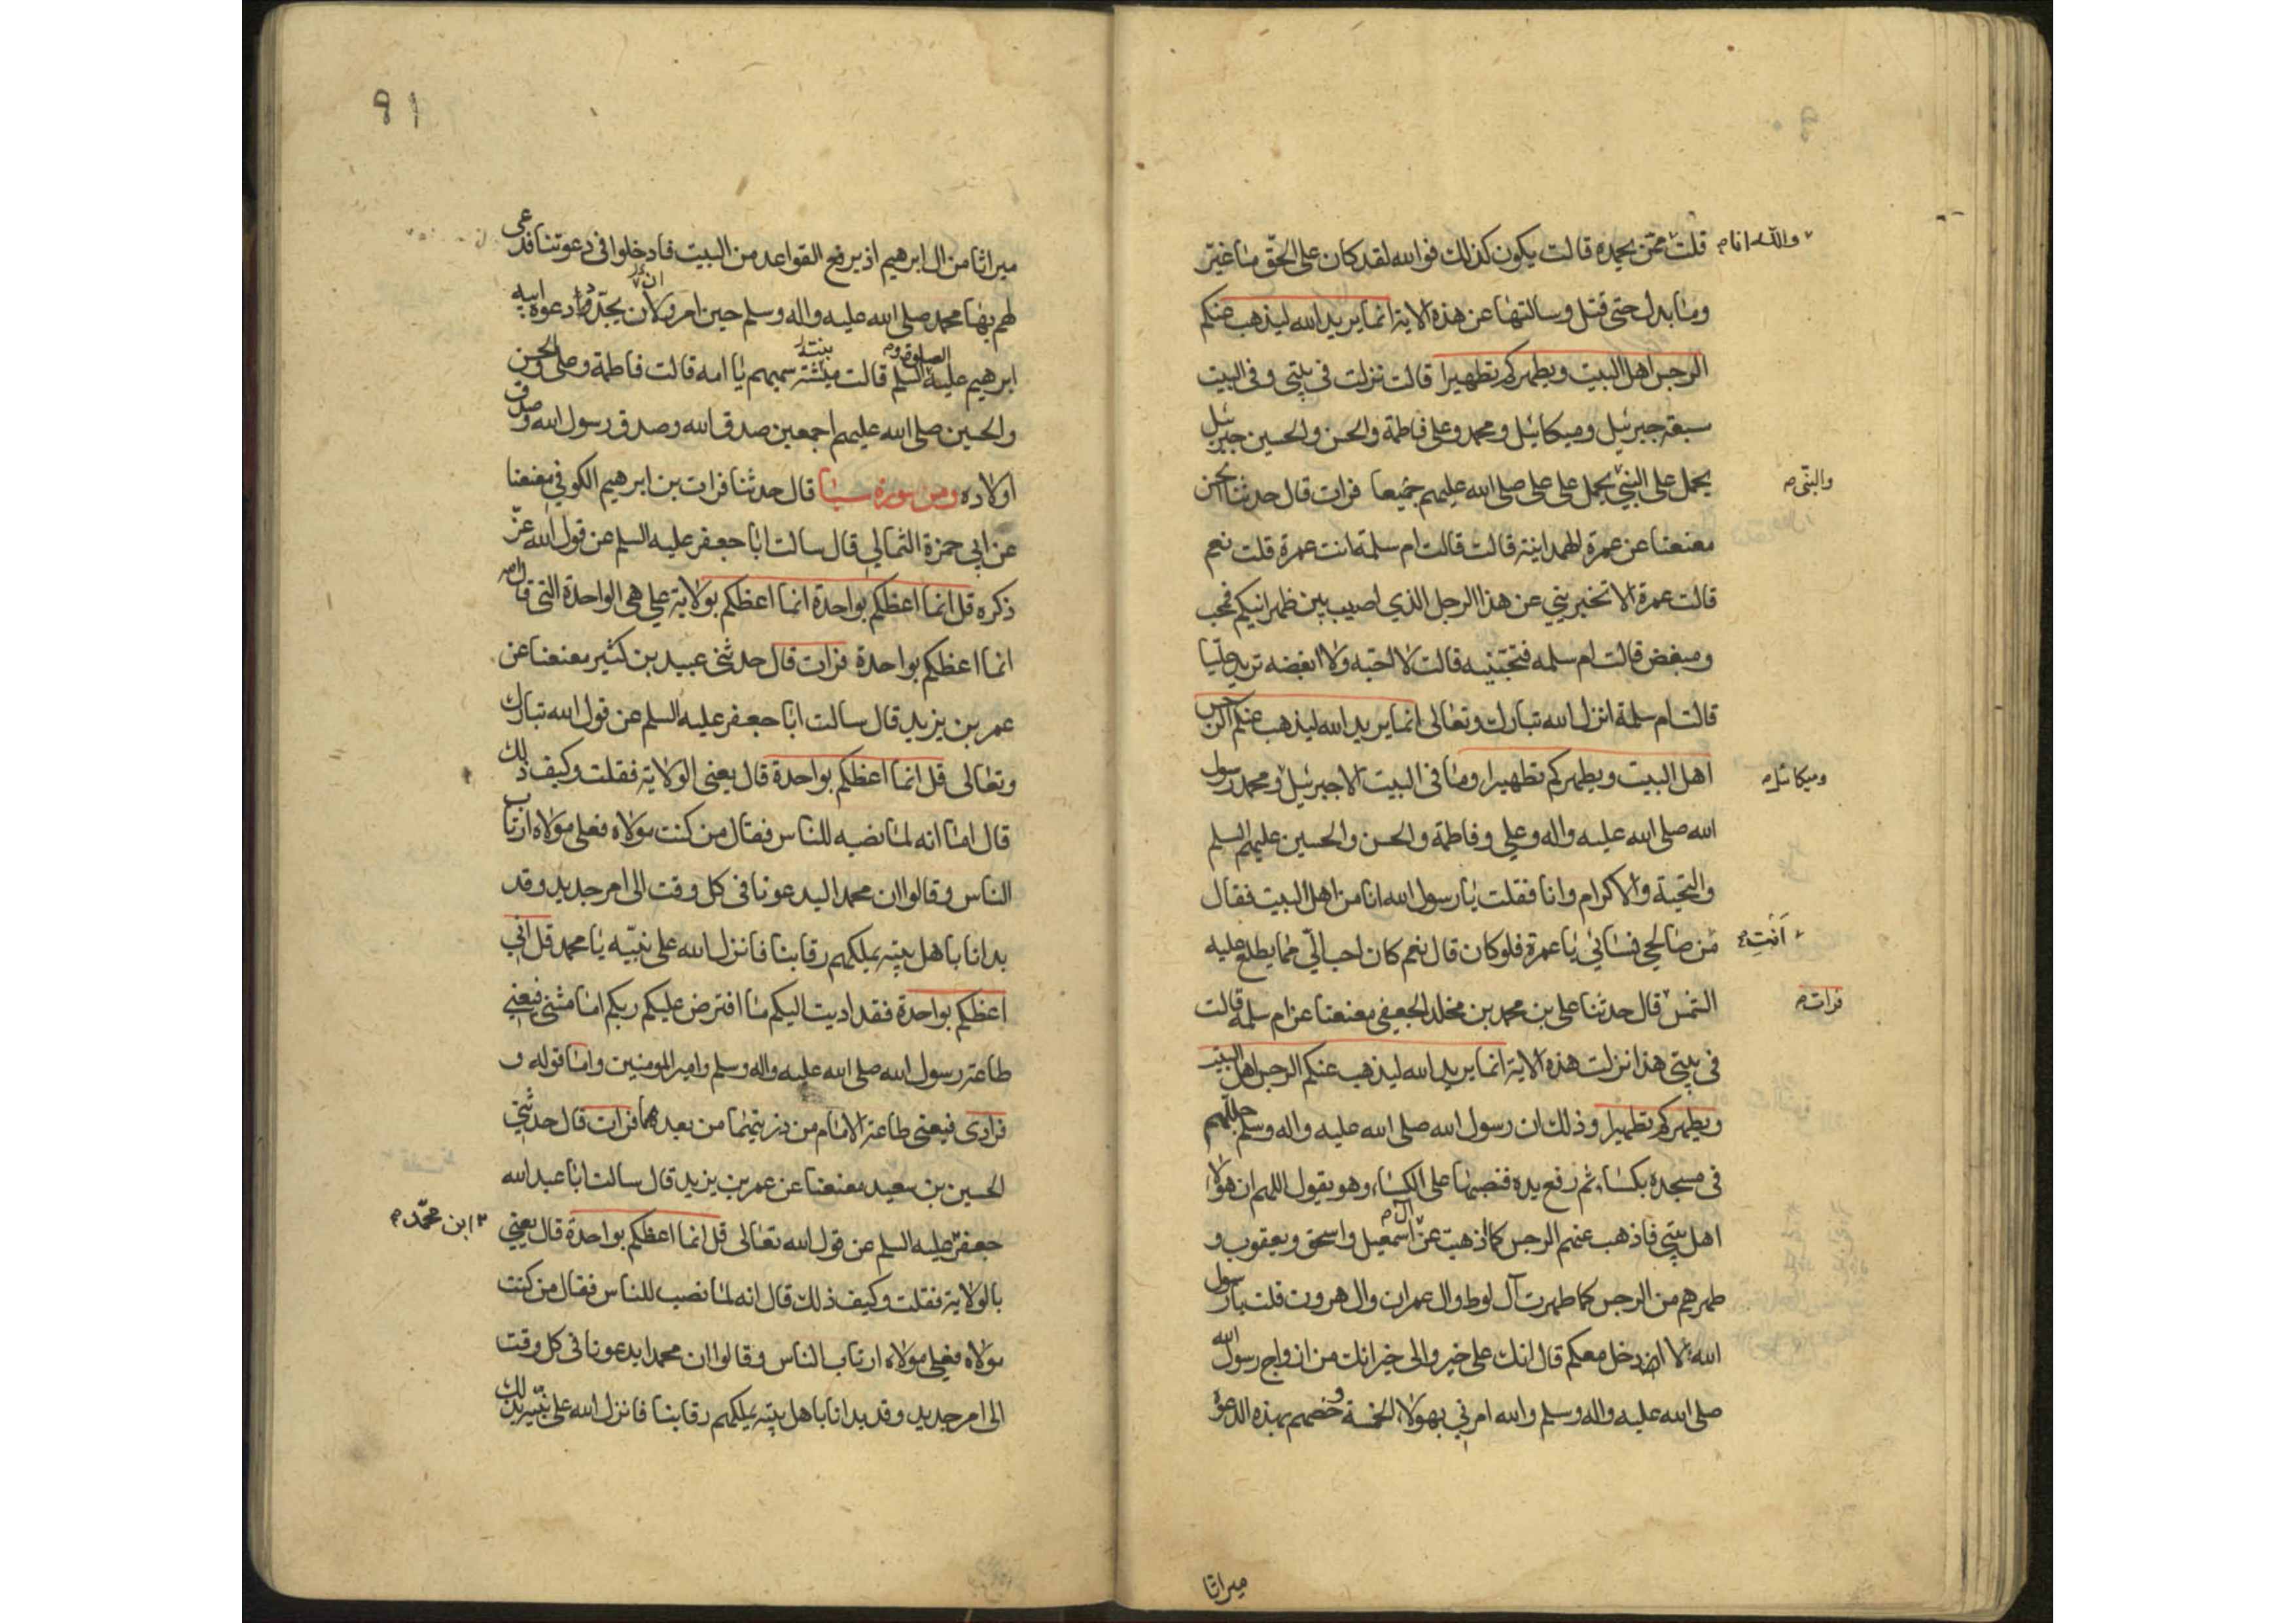 قلت ممن يحمده قالت يكون كذلك فوالله لقد كان على الحق ما غير
والله انا م
وما بدل حتى قتل وسالتها عن هذه الاية انما يريد الله ليذهب عنكم
الرجس اهل البيت ويطهركم تطهيرا قالت نزلت فى بيتي وفى البيت
سبعة جبرئيل وميكائيل ومحمد وعلى فاطمة والحسن والحسين جبرئيل
يحمل على النبي يحمل على على صلى الله عليهم جميعا فرات قال حدثنا الحسن
والنبى م
معنعنا عن عمرة الهمدانية قالت قالت ام سلمة انت عمرة قلت نعم
قالت عمرة الا تخبريني عن هذا الرجل الذي اصيب بين ظهرانيكم فمحب
ومبغض قالت ام سلمه فتحبينه قالت لا احبه ولا ابغضه تريد عليا
قالت ام سلمة انزل الله تبارك وتعالى انما يريد الله ليذهب عنكم الرجس
اهل البيت ويطهركم تطهيرا وما فى البيت الا جبرئيل ومحمد رسول
وميكائيل م
الله صلى الله عليه واله وعلي وفاطمة والحسن والحسين عليهم السلم
والتحية والاكرام وانا فقلت يا رسول الله انا من اهل البيت فقال
من صالحي نسائي يا عمرة فلو كان قال نعم كان احب الي مما يطلع عليه
انت م
الشمس قال حدثنا على بن محمد بن مخلد الجعفي معنعنا عن ام سلمة قالت
فرات م
فى بيتى هذا نزلت هذه الاية انما يريد الله ليذهب عنكم الرجس اهل البيت
ويطهركم تطهيرا وذلك ان رسول الله صلى الله عليه واله وسلم جللهم
فى مسجده بكساء ثم رفع يده فنصبها على الكساء وهو يقول اللهم ان هؤلاء
اهل بيتي فاذهب عنهم الرجس كما اذهبت عن آل اسمعيل واسحق ويعقوب و
طهرهم من الرجس كما طهرت آل لوط وال عمران وال هرون قلت يا رسول
الله الا ادخل معكم قال انك على خير والى خير انك من ازواج رسول الله
صلى الله عليه واله وسلم والله امرني بهولاء الخمسة وخصهم بهذه الدعوة
ميراثا
91
ميراثا من ال ابرهيم اذ يرفع القواعد من البيت فادخلوا فى دعوتنا فدعى
لهم بها محمد صلى الله عليه واله وسلم حين امر ولان يجدد دعوة ابيه
ابرهيم عليه الصلوة والسلم قالت بنته سميهم يا امه قالت فاطمة وعلي والحسن
والحسين صلى الله عليهم اجمعين صدق الله وصدق رسول الله وصدق
اولاده ومن سورة سبا قال حدثنا فرات بن ابرهيم الكوفي معنعنا
عن ابي حمزة الثمالي قال سالت ابا جعفر عليه السلم عن قول الله عز
ذكره قل انما اعظكم بواحدة انما اعظكم بولاية علي هى الواحدة التى قال
انما اعظكم بواحدة فرات قال حدثنى عبيد بن كثير معنعنا عن
عمر بن يزيد قال سالت ابا جعفر عليه السلم عن قول الله تبارك
وتعالى قل انما اعظكم بواحدة قال يعنى الولاية فقلت وكيف ذلك
قال اما انه لما نصبه للناس فقال من كنت مولاه فعلي مولاه ارتاب
الناس وقالوا ان محمدا ليدعونا فى كل وقت الى امر جديد وقد
بدانا باهل بيته يملكهم رقابنا فانزل الله على نبيه يا محمد قل انى
اعظكم بواحدة فقد اديت اليكم ما افترض عليكم ربكم اما مثنى فيعني
طاعة رسول الله صلى الله عليه واله وسلم وامير المومنين واما قوله و
فرادى فيعنى طاعة الامام من ذريتهما من بعدهما فرات قال حدثني
الحسين بن سعيد معنعنا عن عمر بن يزيد قال سالت ابا عبد الله
جعفر عليه السلم عن قول الله تعالى قل انما اعظكم بواحدة قال يعني
ابن محمد م
بالولاية فقلت وكيف ذلك قال انه لما نصب للناس فقال من كنت
مولاه فعلي مولاه ارتاب الناس وقالوا ان محمدا يدعونا فى كل وقت
الى امر جديد وقد بدانا باهل بيته يملكهم رقابنا فانزل الله على نبيه بذلك